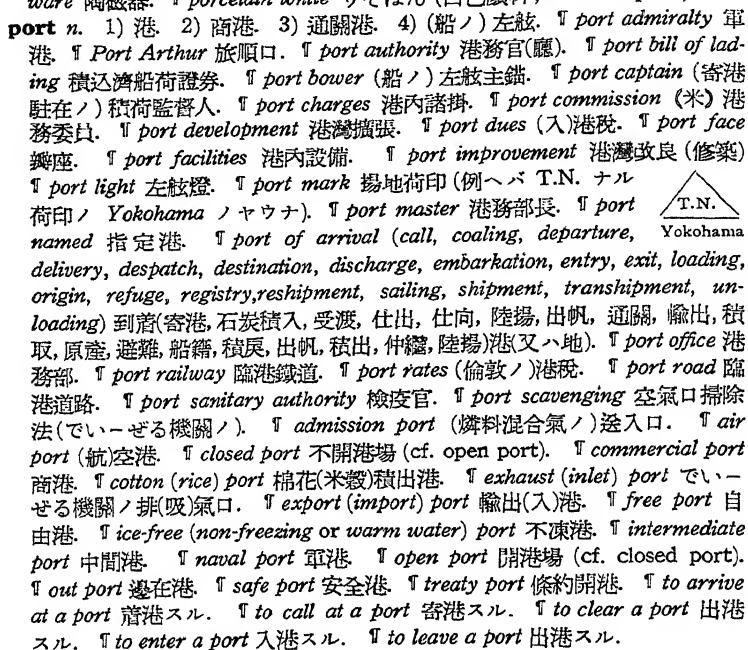 ware 陶磁器. ¶ porcelain white
port n. 1) 港. 2) 商港. 3) 通關港. 4) (船ノ) 左舷. ¶ port admiralty 軍
港. ¶ Port Arthur 旅順口. ¶ port authority 港務官(廳). ¶ port bill of lad-
ing 積込濟船荷證券. ¶ port bower (船ノ) 左舷主錨. ¶ port captain (寄港
駐在ノ) 積荷監督人. ¶ port charges 港內諸掛. ¶ port commission 《米》 港
務委員. ¶ port development 港灣擴張. ¶ port dues (入)港稅. ¶ port face
瓣座. ¶ port facilities 港內設備. ¶ port improvement 港灣改良 (修築)
¶ port light 左舷燈. ¶ port mark 揚地荷印 (例ヘバ T.N. ナル
荷印ノ Yokohama ノヤウナ). ¶ port master 港務部長. ¶ port
T.N.
named 指定港. ¶ port of arrival (call, coaling, departure,
Yokohama
delivery, despatch, destination, discharge, embarkation, entry, exit, loading,
origin, refuge, registry,reshipment, sailing, shipment, transhipment, un-
loading) 到着(寄港, 石炭積入, 受渡, 仕出, 仕向, 陸揚, 出帆, 通關, 輸出, 積
取, 原產, 避難, 船籍, 積戾, 出帆, 積出, 仲繼, 陸揚)港(又ハ地). ¶ port office 港
務部. ¶ port railway 臨港鐵道. ¶ port rates (倫敦ノ)港稅. ¶ port road 臨
港道路. ¶ port sanitary authority 檢疫官. ¶ port scavenging 空氣口掃除
法(でいーぜる機關ノ). ¶ admission port (燃料混合氣ノ)送入口. ¶ air
port (航)空港. ¶ closed port 不開港場 (cf. open port). ¶ commercial port
商港. ¶ cotton (rice) port 棉花(米穀)積出港. ¶ exhaust (inlet) port でいー
ぜる機關ノ排(吸)氣口. ¶ export (import) port 輸出(入)港. ¶ free port 自
由港. ¶ ice-free (non-freezing or warm water) port 不凍港. ¶ intermediate
port 中間港. ¶ naval port 軍港. ¶ open port 開港場 (cf. closed port).
¶ out port 邊在港. ¶ safe port 安全港. ¶ treaty port 條約開港. ¶ to arrive
at a port 着港スル. ¶ to call at a port 寄港スル. ¶ to clear a port 出港
スル. ¶ to enter a port 入港スル. ¶ to leave a port 出港スル.